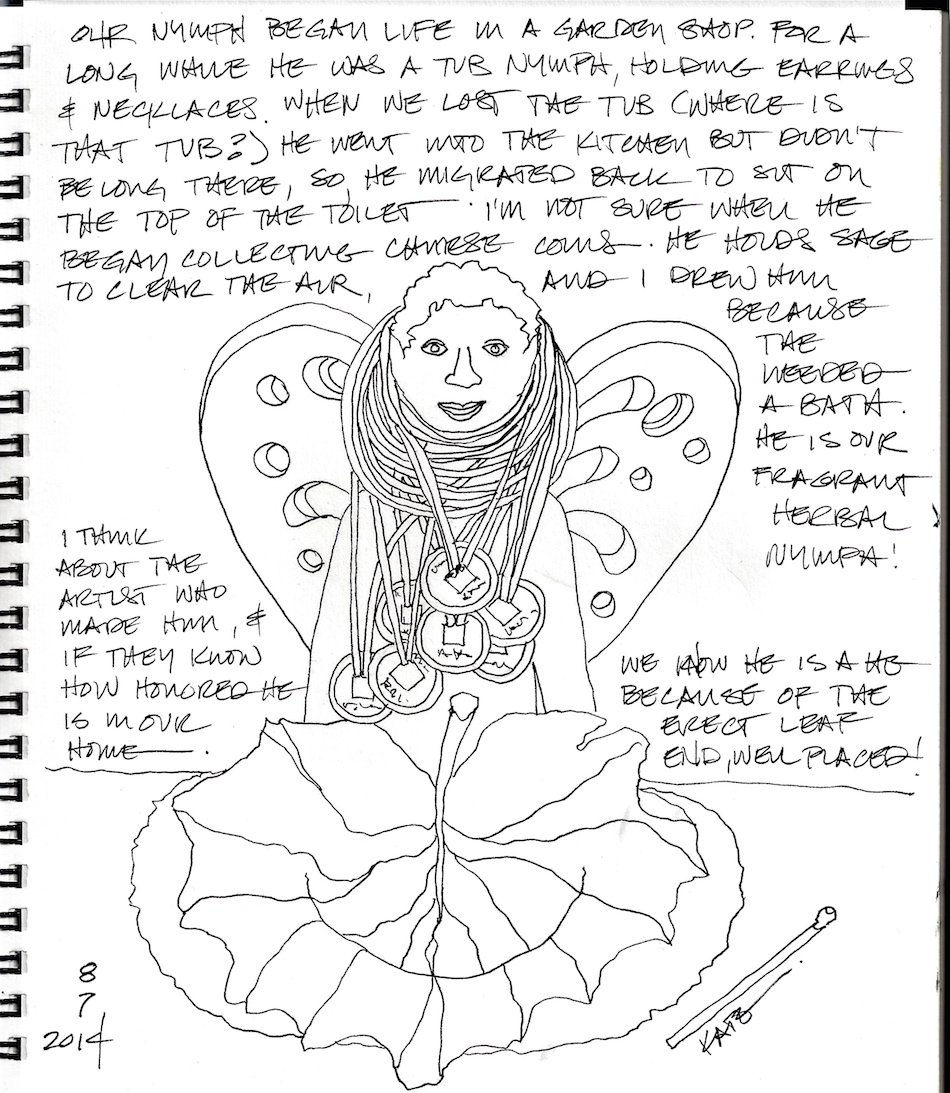 OUR NYMPH BEGAN LIFE IN A GARDEN SHOP. FOR A
LONG WHILE HE WAS A TUB NYMPH, HOLDING EARRINGS
& NECKLACES. WHEN WE LOST THE TUB (WHERE IS
THAT TUB?) HE WENT INTO THE KITCHEN BUT DIDN'T
BELONG THERE, SO, HE MIGRATED BACK TO SIT ON
THE TOP OF THE TOILET. I'M NOT SURE WHEN HE
BEGAN COLLECTING CHINESE COINS. HE HOLDS SAGE
TO CLEAR THE AIR, AND I DREW HIM
BECAUSE
THE
NEEDED
A BATH.
HE IS OUR
FRAGRANT
HERBAL
NYMPH!
I THINK
ABOUT THE
ARTIST WHO
MADE HIM, &
IF THEY KNOW
HOW HONORED HE
IS IN OUR
HOME.
WE KNOW HE IS A HE
BECAUSE OF THE
ERECT LEAF
END, WELL PLACED!
8
7
2014
KATZ